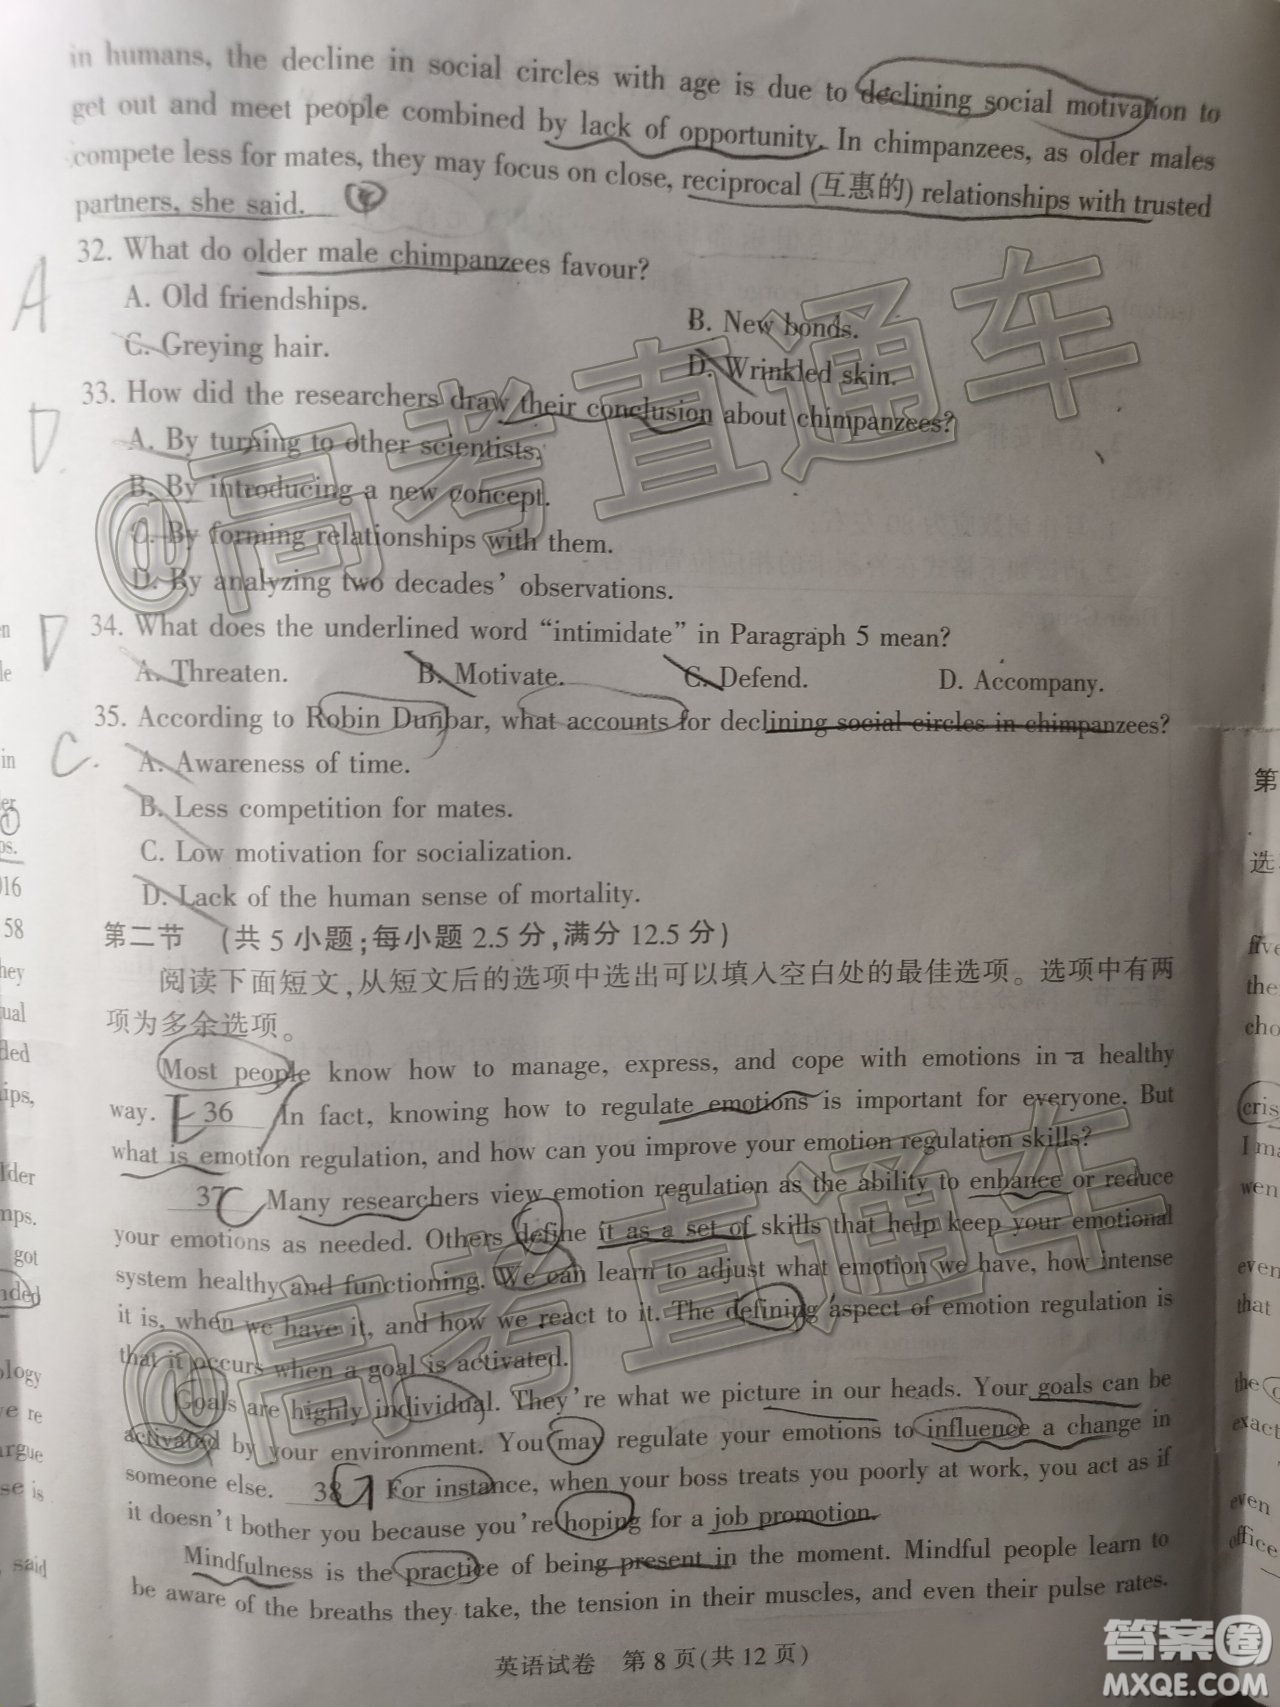 in humans, the decline in social circles with age is due to declining social motivation to
get out and meet people combined by lack of opportunity. In chimpanzees, as older males
compete less for mates, they may focus on close, reciprocal (互惠的) relationships with trusted
partners, she said.
32. What do older male chimpanzees favour?
A
A. Old friendships.
B. New bonds.
C. Greying hair.
D. Wrinkled skin.
33. How did the researchers draw their conclusion about chimpanzees?
D.
A. By turning to other scientists.
B. By introducing a new concept.
C. By forming relationships with them.
D. By analyzing two decades' observations.
34. What does the underlined word "intimidate" in Paragraph 5 mean?
D
A. Threaten. B. Motivate. C. Defend. D. Accompany.
35. According to Robin Dunbar, what accounts for declining social circles in chimpanzees?
C.
A. Awareness of time.
B. Less competition for mates.
C. Low motivation for socialization.
D. Lack of the human sense of mortality.
第二节 (共 5 小题;每小题 2.5 分,满分 12.5 分)
阅读下面短文,从短文后的选项中选出可以填入空白处的最佳选项。选项中有两
项为多余选项。
Most people know how to manage, express, and cope with emotions in a healthy
way. 36 In fact, knowing how to regulate emotions is important for everyone. But
what is emotion regulation, and how can you improve your emotion regulation skills?
37 Many researchers view emotion regulation as the ability to enhance or reduce
your emotions as needed. Others define it as a set of skills that help keep your emotional
system healthy and functioning. We can learn to adjust what emotion we have, how intense
it is, when we have it, and how we react to it. The defining aspect of emotion regulation is
that it occurs when a goal is activated.
Goals are highly individual. They're what we picture in our heads. Your goals can be
activated by your environment. You may regulate your emotions to influence a change in
someone else. 38 For instance, when your boss treats you poorly at work, you act as if
it doesn't bother you because you're hoping for a job promotion.
Mindfulness is the practice of being present in the moment. Mindful people learn to
be aware of the breaths they take, the tension in their muscles, and even their pulse rates.
英语试卷 第 8 页(共 12 页)
@高考直通车
@高考直通车
答案圈
MXQE.COM